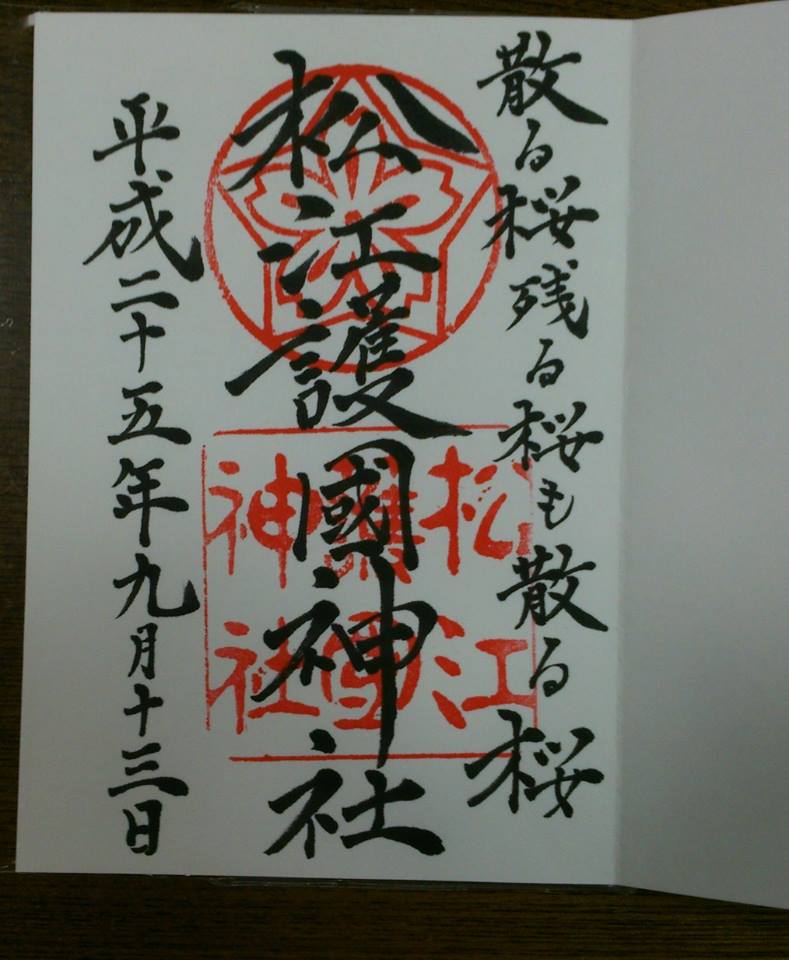 散る桜残る桜も散る桜
松江護國神社
平成二十五年九月十三日
松江
護國
神社